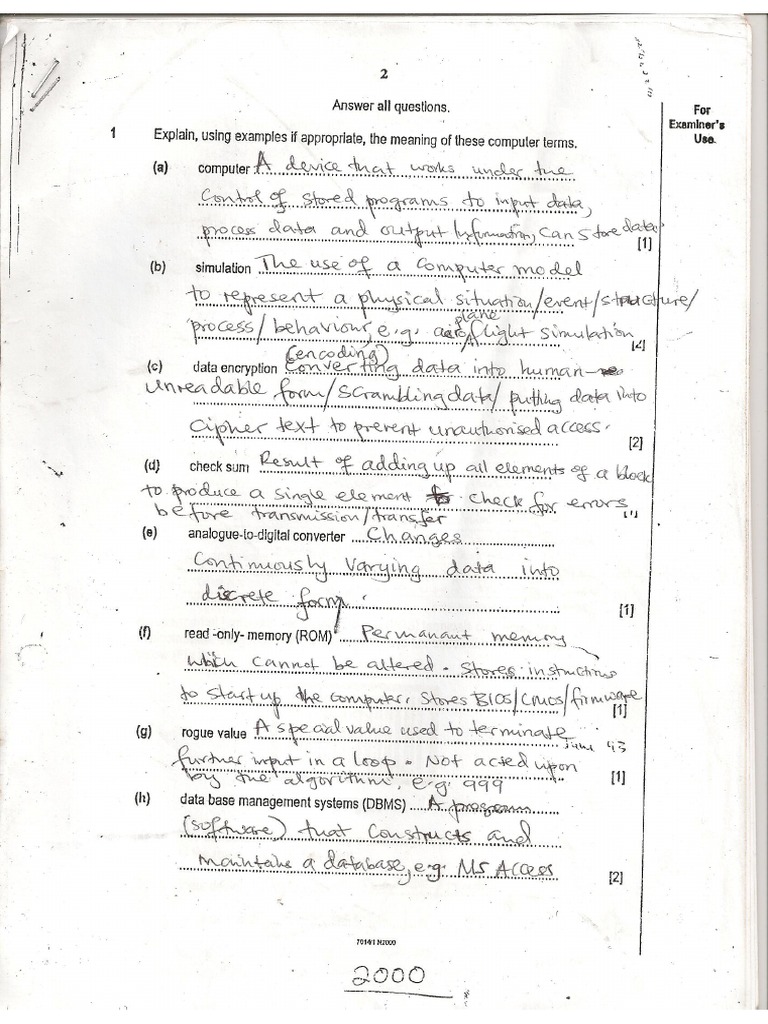 2
Answer all questions.
For
Examiner's
Use.
1 Explain, using examples if appropriate, the meaning of these computer terms.
(a) computer A device that works under the
control of stored programs to input data,
process data and output information, can store data
[1]
(b) simulation The use of a computer model
to represent a physical situation/event/structure/
plane
process/behaviour, e.g. aero flight simulation
(encoding)
(c) data encryption Converting data into human-
unreadable form/scrambling data/ putting data into
cipher text to prevent unauthorised access.
[2]
(d) check sum Result of adding up all elements of a block
to produce a single element to check for errors
before transmission/transfer
(e) analogue-to-digital converter Changes
continuously varying data into
discrete form.
[1]
(f) read -only- memory (ROM) Permanant memory
which cannot be altered. Stores instructions
to start up the computer, stores BIOS/CMOS/firmware
[1]
(g) rogue value A special value used to terminate
further input in a loop. Not acted upon
by the algorithm, e.g. 999
[1]
(h) data base management systems (DBMS) A program
(software) that constructs and
maintains a database, e.g. Ms Access
[2]
7014/1 N2000
2000